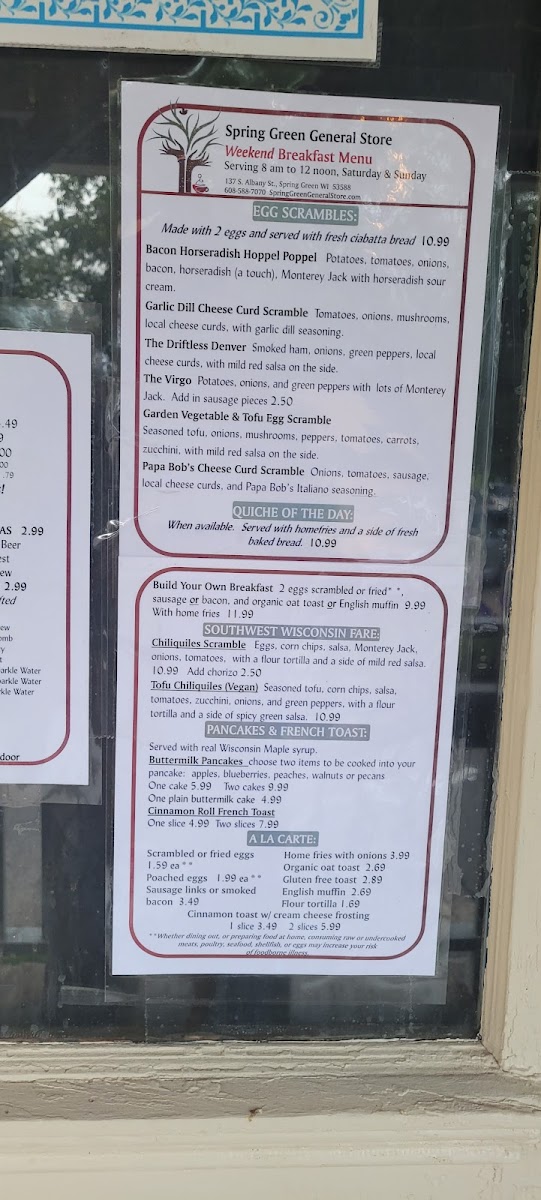 Spring Green General Store
Weekend Breakfast Menu
Serving 8 am to 12 noon, Saturday & Sunday
137 S. Albany St., Spring Green WI 53588
608-588-7070 SpringGreenGeneralStore.com
EGG SCRAMBLES:
Made with 2 eggs and served with fresh ciabatta bread 10.99
Bacon Horseradish Hoppel Poppel Potatoes, tomatoes, onions,
bacon, horseradish (a touch), Monterey Jack with horseradish sour
cream.
Garlic Dill Cheese Curd Scramble Tomatoes, onions, mushrooms,
local cheese curds, with garlic dill seasoning.
The Driftless Denver Smoked ham, onions, green peppers, local
cheese curds, with mild red salsa on the side.
The Virgo Potatoes, onions, and green peppers with lots of Monterey
Jack. Add in sausage pieces 2.50
Garden Vegetable & Tofu Egg Scramble
Seasoned tofu, onions, mushrooms, peppers, tomatoes, carrots,
zucchini, with mild red salsa on the side.
Papa Bob's Cheese Curd Scramble Onions, tomatoes, sausage,
local cheese curds, and Papa Bob's Italiano seasoning.
QUICHE OF THE DAY:
When available. Served with homefries and a side of fresh
baked bread. 10.99
Build Your Own Breakfast 2 eggs scrambled or fried* *,
sausage or bacon, and organic oat toast or English muffin 9.99
With home fries 11.99
SOUTHWEST WISCONSIN FARE:
Chiliquiles Scramble Eggs, corn chips, salsa, Monterey Jack,
onions, tomatoes, with a flour tortilla and a side of mild red salsa.
10.99 Add chorizo 2.50
Tofu Chiliquiles (Vegan) Seasoned tofu, corn chips, salsa,
tomatoes, zucchini, onions, and green peppers, with a flour
tortilla and a side of spicy green salsa. 10.99
PANCAKES & FRENCH TOAST:
Served with real Wisconsin Maple syrup.
Buttermilk Pancakes choose two items to be cooked into your
pancake: apples, blueberries, peaches, walnuts or pecans
One cake 5.99 Two cakes 9.99
One plain buttermilk cake 4.99
Cinnamon Roll French Toast
One slice 4.99 Two slices 7.99
A LA CARTE:
Scrambled or fried eggs
1.59 ea * *
Poached eggs 1.99 ea * *
Sausage links or smoked
bacon 3.49
Home fries with onions 3.99
Organic oat toast 2.69
Gluten free toast 2.89
English muffin 2.69
Flour tortilla 1.69
Cinnamon toast w/ cream cheese frosting
1 slice 3.49 2 slices 5.99
**Whether dining out, or preparing food at home, consuming raw or undercooked
meats, poultry, seafood, shellfish, or eggs may increase your risk
of foodborne illness.
.49
9
00
00
.79
AS 2.99
Beer
2.99
arkle Water
arkle Water
rkle Water
door